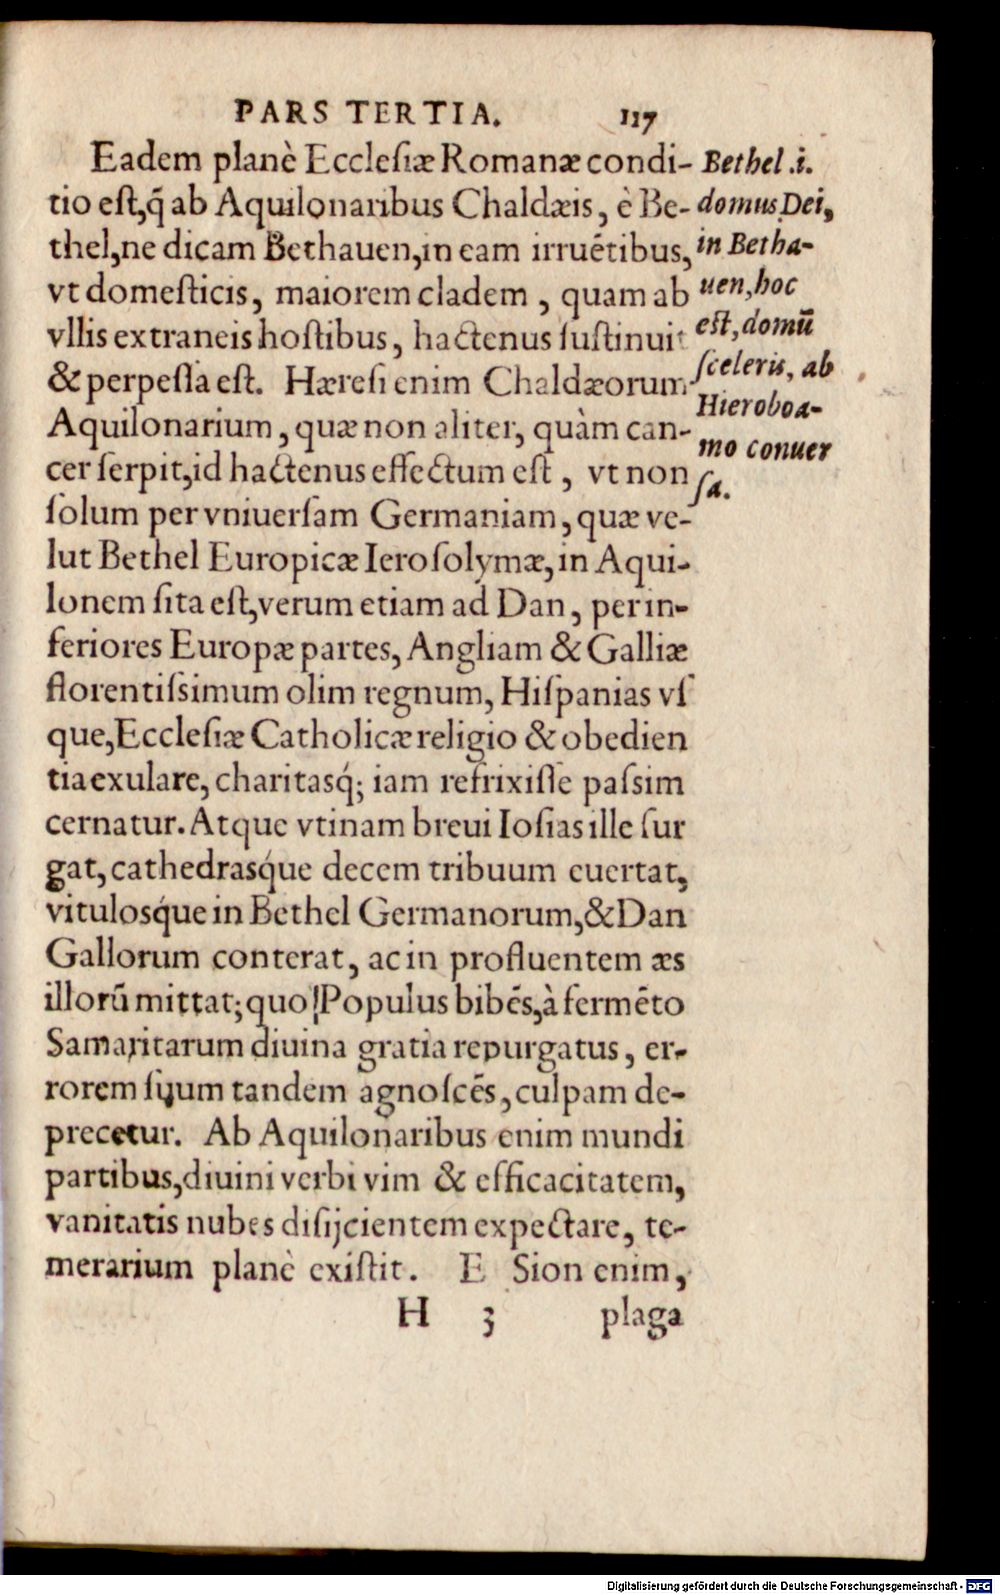 PARS TERTIA. 117
Eadem planè Ecclesiæ Romanæ condi-
tio est,q̃ ab Aquilonaribus Chaldæis, è Be-
thel,ne dicam Bethauen,in eam irruẽtibus,
vt domesticis, maiorem cladem , quam ab
vllis extraneis hostibus, hactenus sustinuit
& perpessa est. Hæresi enim Chaldæorum
Aquilonarium , quæ non aliter, quàm can-
cer serpit,id hactenus effectum est , vt non
solum per vniuersam Germaniam, quæ ve-
lut Bethel Europicæ Ierosolymæ, in Aqui-
lonem sita est,verum etiam ad Dan, per in-
feriores Europæ partes, Angliam & Galliæ
florentissimum olim regnum, Hispanias vs
que,Ecclesiæ Catholicæ religio & obedien
tia exulare, charitasq́; iam refrixisse passim
cernatur. Atque vtinam breui Iosias ille sur
gat, cathedrasq́ue decem tribuum euertat,
vitulosq́ue in Bethel Germanorum,& Dan
Gallorum conterat, ac in profluentem æs
illorũ mittat; quo Populus bibẽs,à fermẽto
Samaritarum diuina gratia repurgatus, er-
rorem suum tandem agnoscẽs, culpam de-
precetur. Ab Aquilonaribus enim mundi
partibus,diuini verbi vim & efficacitatem,
vanitatis nubes disijcientem expectare, te-
merarium planè existit. E Sion enim,
H 3 plaga
Bethel .i.
domus Dei,
in Betha-
uen, hoc
est, domũ
sceleris, ab
Hieroboa-
mo conuer
sa.
Digitalisierung gefördert durch die Deutsche Forschungsgemeinschaft - DFG